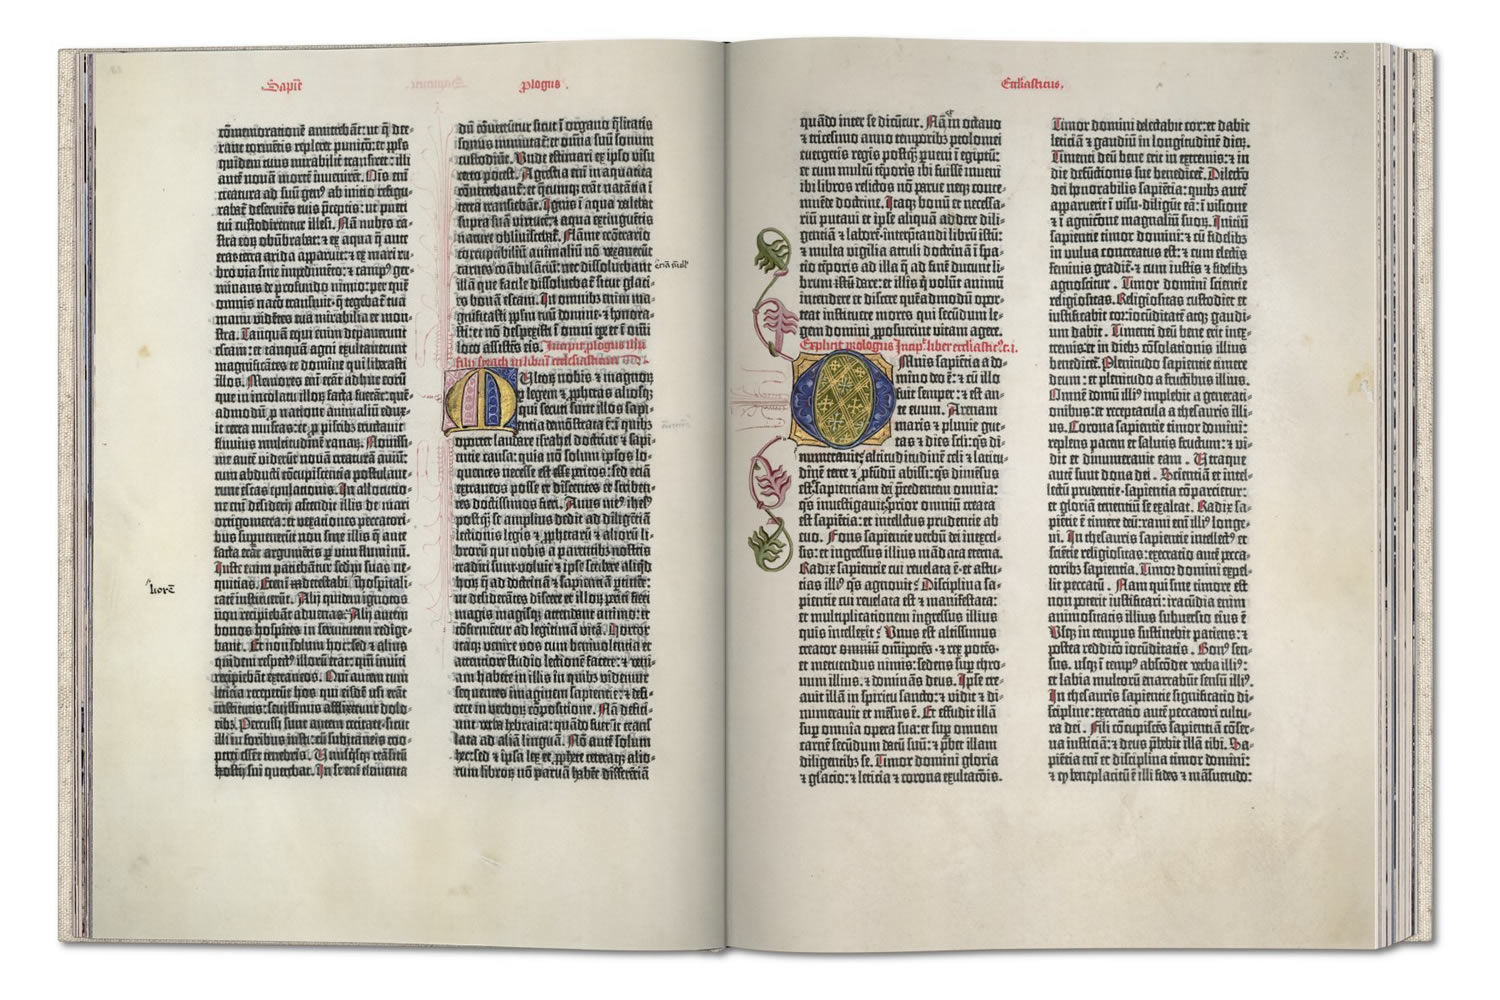 Sapiē
Plogus.
cōmemorationē annūebāt: ut q̄ dee-
rant tormētis replerēt punitio: et pp̄s
quidem tuus mirabilit̄ transiret: illi
autē nouā mortē inuenirēt. Ois eni
creatura ad suū gen⁹ ab initio refigu-
rabat̄ deseruiēs tuis p̄ceptis: ut pueri
tui custodirentur illesi. Nā nubes ca-
stra eoꝝ obūbrabat: ⁊ ex aqua q̄ ante
erat terra arida apparuit: ⁊ ī mari ru-
bro via sine impedimēto: ⁊ camp⁹ ger-
minans de profundo nimio: per quē
omnis natō trāsiuit · q̄ tegebat̄ tua
manu vidētes tua mirabilia et mon-
stra. Tanquā equi enim depauerunt
escam: et tanquā agni exultauerunt
magnificātes te domine qui liberasti
illos. Memores eni erāt adhuc eorū
que in incolatu illoꝝ facta fuerāt: quē-
admodū p natione animaliū edux-
it terra muscas: et p piscib⁹ eructauit
fluuius multitudinē ranaꝝ. Nouissi-
me autē viderūt nouā creaturā auiū:
cum abducti cōcupiscētia postulaue-
runt escas epulationis. In allocutio-
ne eni desiderij ascendit illis de mari
ortigometra: et vexationes peccatori-
bus supuenerūt non sine illis q̄ ante
facta erāt argumētis p vim fluminū.
Iuste enim patiebātur sedm suas ne-
quitias. Eteni detestabilē inhospitali-
tatē instituerūt. Alij quidem ignotos
non recipiebāt aduenas: Alij autem
bonos hospites in seruitutem redige-
bant. Et non solum hec: sed ⁊ alius
quidem respect⁹ illorū erat: qm̄ inuiti
recipiebāt extraneos. Qui autem cum
leticia receperūt hos qui eisdē usi erāt
iusticijs: seuissimis afflixerunt dolo-
ribꝫ. Percussi sunt autem cecitate: sicut
illi in foribus iusti: cū subitaneis coo-
perti essēt tenebris. Vnusq̄sq̄ transitū
hostij sui querebat. In se eni elementa
dū cōuertūtur sicut ī organo q̄litatis
sonus inmutat̄: et omnia suū sonum
custodiūt. Vnde estimari ex ipso visu
certo potest. Agrestia eni in aquatica
cōuertebant̄: et q̄cunq̄ erāt natātia ī
terrā transiebāt. Ignis ī aqua valebat
supra suā virtutē: ⁊ aqua extinguētis
nature obliuiscebat̄. Flāme ecōtrario
corruptibiliū animaliū nō vexauerūt
carnes coābulātiū: nec dissoluebant
illā que facile dissoluebat̄ sicut glaci-
es bonā escam. In omnibꝫ enim ma-
gnificasti pplm tuū domine · ⁊ honora-
sti: et nō despexisti ī omni tpe et ī omi
loco assistēs eis. Incipit plogus ihu
filij syrach in librū ecclesiasticum
Vltoꝝ nobis ⁊ magnoꝝ
p legem ⁊ pphetas aliosq̄
qui secuti sunt illos sapi-
entia demōstrata ē: ī quibꝫ
oportet laudare israhel doctrine ⁊ sapi-
entie causa: quia nō solum ipsos lo-
quentes necesse est esse peritos: sed etiā
extraneos posse et dicentes et scriben-
tes doctissimos fieri. Auus me⁹ ihes⁹
postq̄ se amplius dedit ad diligētiā
lectionis legis ⁊ pphetarū ⁊ aliorū li-
brorū qui nobis a parentibꝫ nostris
traditi sunt · voluit ⁊ ipse scribere aliqd
horꝝ q̄ ad doctrinā ⁊ sapientiā ptinēt:
ut desiderātes discere et illoꝝ piti facti
magis magisq̄ attendant animo: et
cōfirmētur ad legitimā vitā. Hortor
itaq̄ venire vos cum beniuolentia et
attentiore studio lectionē facere: ⁊ veni-
am habere in illis in quibꝫ videmur
sequentes imaginem sapientie: ⁊ defi-
cere in verboꝝ cōpositione. Nā defici-
unt verba hebraica: quādo fuerīt trans-
lata ad aliā linguā. Nō autē solum
hec: sed ⁊ ipsa lex et pphete ceteraq̄ alio-
rum libroꝝ nō paruā habēt differētiā
horē
Ecclīasticus.
25.
quādo inter se dicūtur. Nā in octauo
et tricesimo anno temporibꝫ ptolomei
euergetis regis postq̄ pueni ī egiptū:
et cum multū tēporis ibi fuissē inueni
ibi libros relictos nō parue neq̄ conte-
mnēte doctrine. Itaq̄ bonū et necessa-
riū putaui et ipse aliquā addere dili-
gentiā ⁊ laborē · interptandi librū istū:
⁊ multa vigilia attuli doctrinā ī spa-
cio tēporis ad illa q̄ ad finē ducunt li-
brum istū dare: et illis q̄ volūt animū
intendere et discere quēadmodū opor-
teat instituere mores qui secūdum le-
gem domini pposuerint vitam agere.
Explicit prologus Incip̄ liber ecclīastic⁹ c. i.
Mnis sapientia a do-
mino deo ē: ⁊ cū illo
fuit semper: ⁊ est an-
te euum. Arenam
maris ⁊ pluuie gut-
tas ⁊ dies scli: q̄s di-
numerauit⸵ altitudinē celi ⁊ latitu-
dinē terre ⁊ pfūdū abissi: q̄s dimēsus
est⸵ sapientiam dei p̄cedentem omnia:
q̄s inuestigauit⸵ prior omniū creata
est sapiētia: et intellectus prudentie ab
euo. Fons sapientie verbū dei in excel-
sis: et ingressus illius mādata eterna.
Radix sapientie cui reuelata ē · et astu-
tias illi⁹ q̄s agnouit⸵ Disciplina sa-
pientie cui reuelata est ⁊ manifestata:
et multiplicationem ingressus illius
quis intellexit⸵ Vnus est altissimus
creator omniū omīpotēs · ⁊ rex potēs ·
et metuendus nimis: sedens sup thro-
num illius. ⁊ dominās deus. Ipse cre-
auit illā in spiritu sancto: ⁊ vidit ⁊ di-
numerauit et mēsus ē. Et effudit illā
sup omnia opera sua: et sup omnem
carnē secūdum datū suū: ⁊ p̄bet illam
diligentibꝫ se. Timor domini gloria
⁊ gl̄acio: ⁊ leticia ⁊ corona exultacōis.
Timor domini delectabit cor: et dabit
leticiā ⁊ gaudiū in longitudinē dieꝝ.
Timenti deū bene erit in extremis: ⁊ in
die defūctionis sue benedicet̄. Dilectō
dei honorabilis sapiētia: quibꝫ autē
apparuerit ī visu · diligūt eā: ī visione
⁊ ī agnicōne magnaliū suoꝝ. Iniciū
sapientie timor domini: ⁊ cū fidelibꝫ
in vulua concreatus est: ⁊ cum electis
feminis gradit̄: ⁊ cum iustis ⁊ fidelibꝫ
agnoscitur. Timor domini sciencie
religiositas. Religiositas custodiet et
iustificabit cor: iocūditatē atq̄ gaudi-
um dabit. Timenti deū bene erit in ex-
tremis: et in diebꝫ cōsolationis illius
benedicet̄. Plenitudo sapientie timere
deum: et plenitudo a fructibus illius.
Omnē domū illi⁹ implebit a generati-
onibus: et receptacula a thesauris illi-
us. Corona sapientie timor domini:
replens pacem et salutis fructum: ⁊ vi-
dit et dinumerauit eam. Vtraque
autē sunt dona dei. Scientiā et intel-
lectū prudentie · sapientia cōparcietur:
et gloriā tenentiū se exaltat. Radix sa-
piētie ē timere deū: rami eni illi⁹ longe-
ui. In thesauris sapientie intellect⁹ et
sciētie religiositas: execratio autē pecca-
toribꝫ sapientia. Timor domini expel-
lit peccatū. Nam qui sine timore est
non poterit iustificari: iracūdia enim
animositatis illius subuersio eius ē
Vsq̄ in tempus sustinebit patiens: ⁊
postea redditō iocūditatis. Bon⁹ sen-
sus. usq̄ ī temp⁹ abscōdet verba illi⁹:
et labia multorū enarrabūt sensū illi⁹.
In thesauris sapientie significatio di-
scipline: execratio autē peccatori cultu-
ra dei. Fili cōcupiscēs sapientiā cōser-
ua iusticiā: ⁊ deus p̄bebit illā tibi. Sa-
piētia eni et disciplina timor domini:
⁊ qd̄ beneplacitū ē illi fides ⁊ māsuetudo: